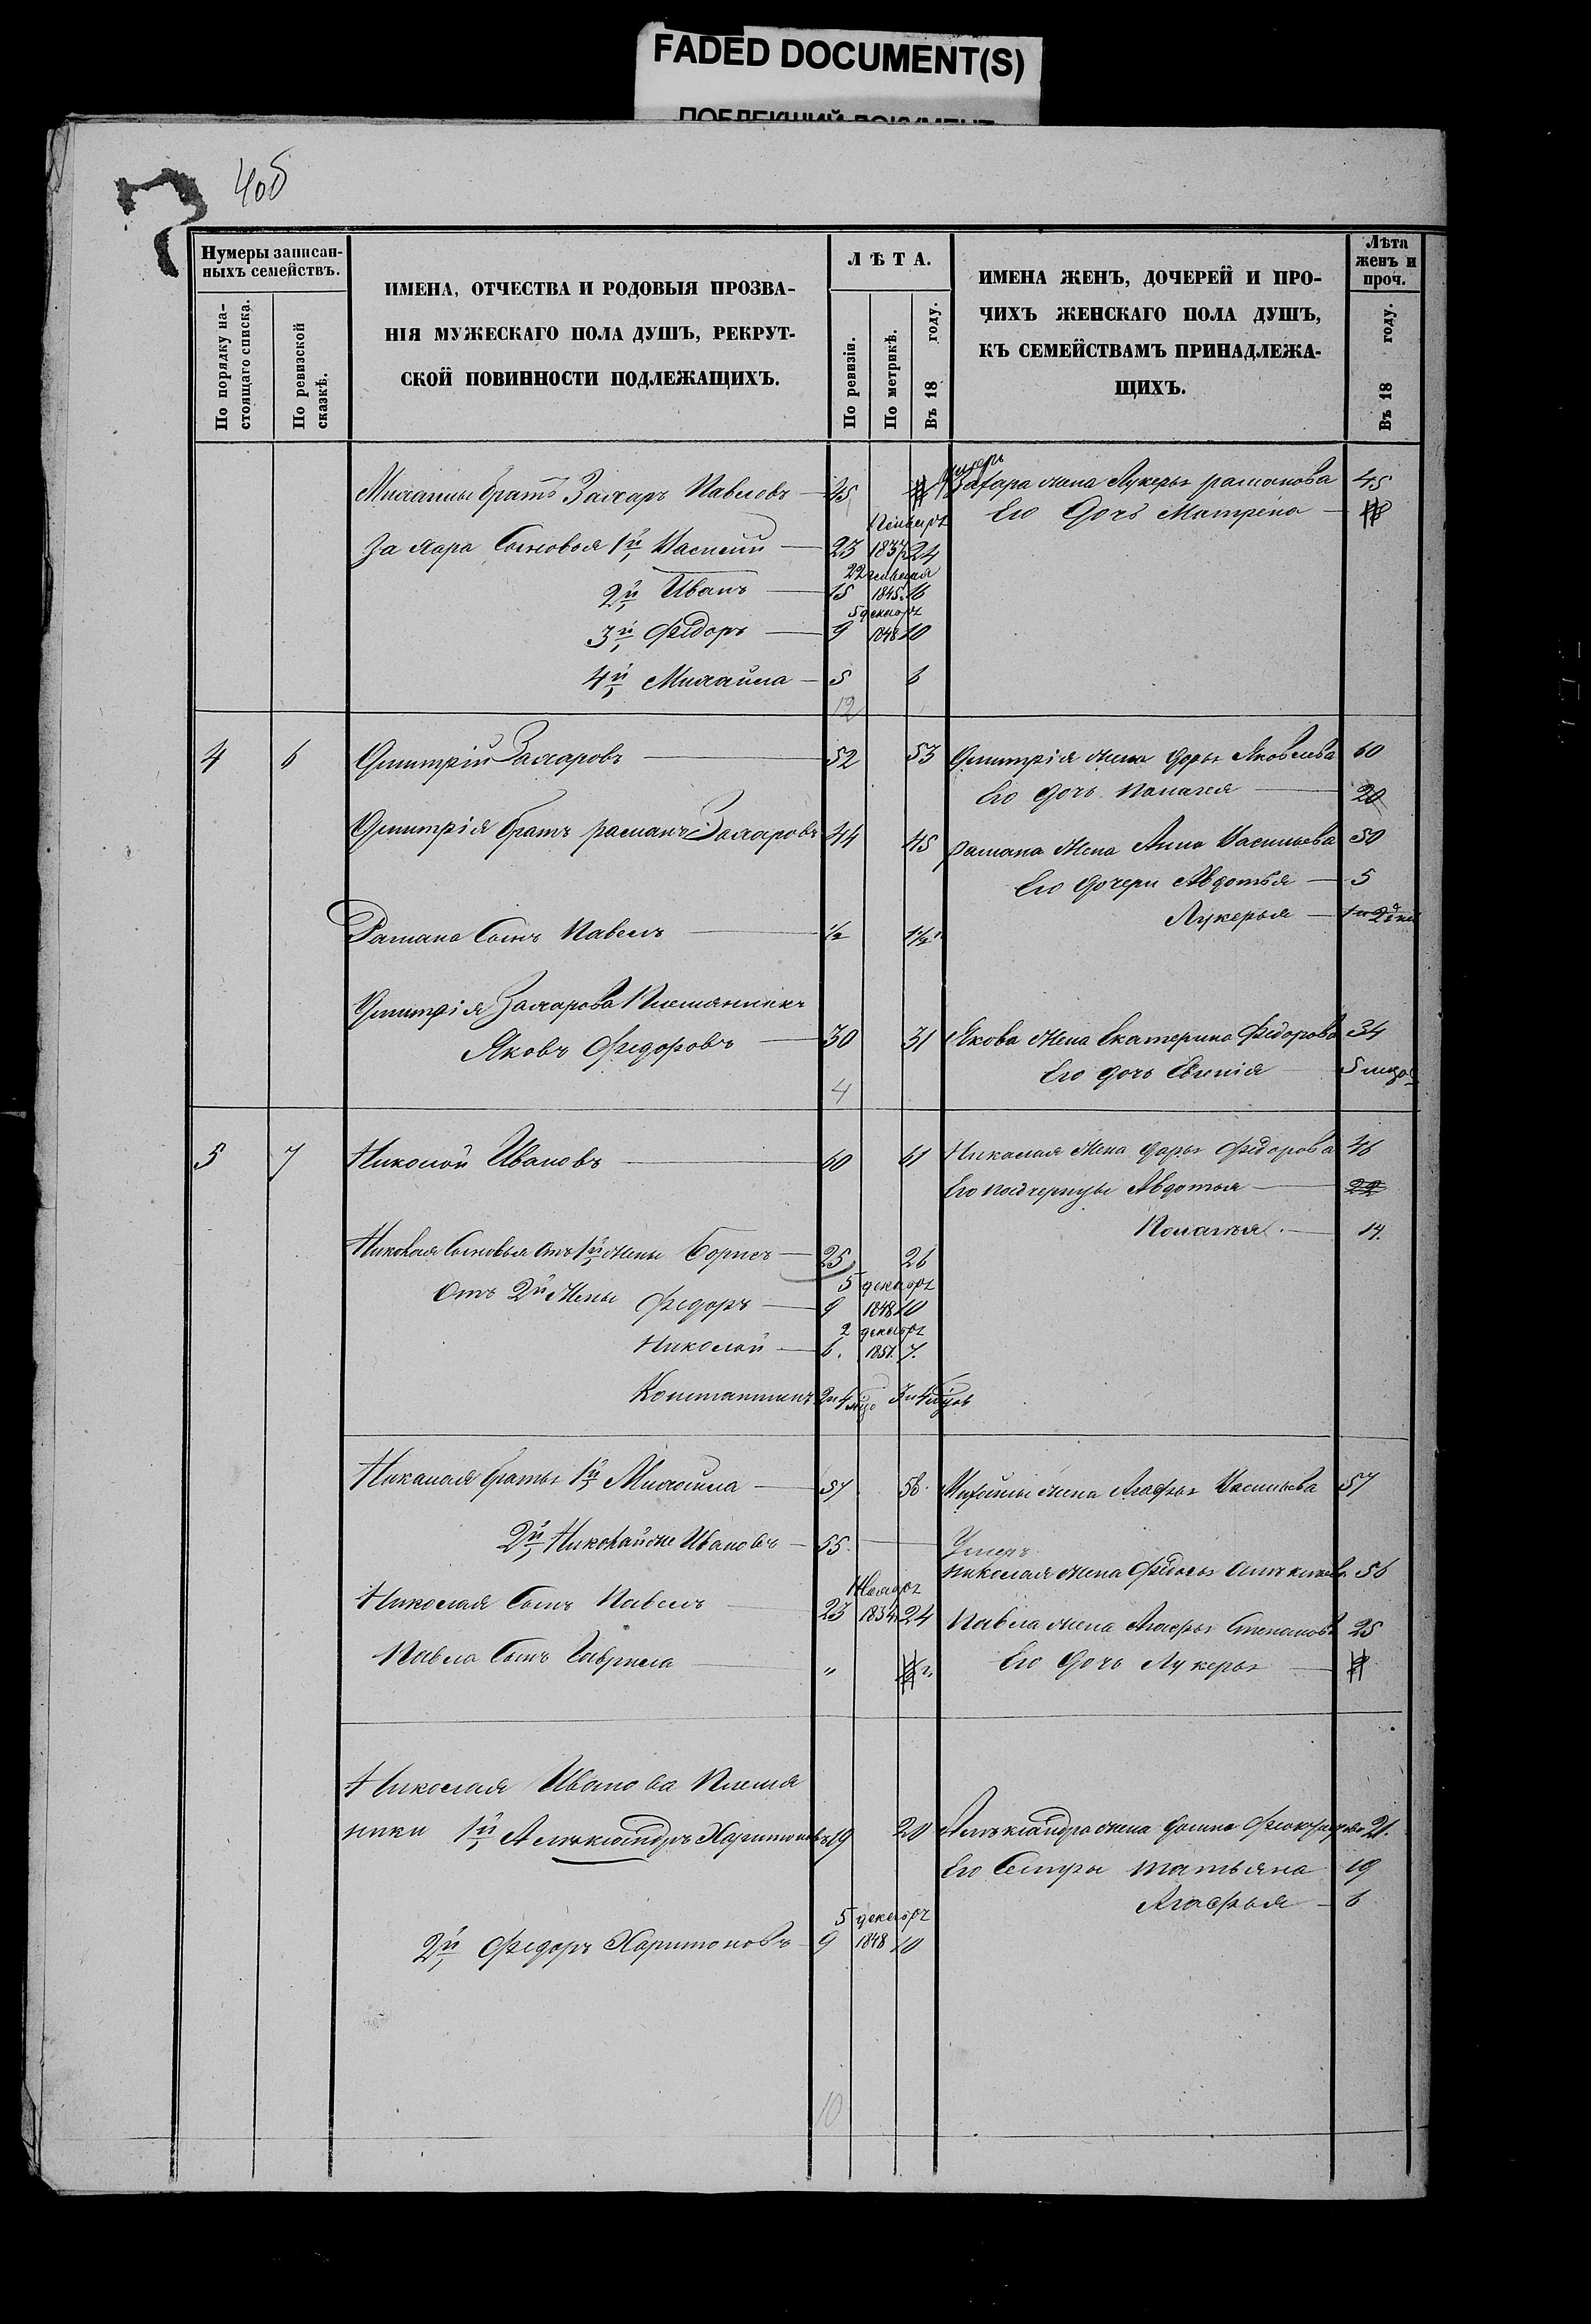 FADED DOCUMENT(S)
ПОБЛЕКШИЙ ДОКУМЕНТ
4об
Нумеры записан-
ныхъ семействъ.
По порядку на-
стоящаго списка.
По ревизской
сказкѣ.
ИМЕНА, ОТЧЕСТВА И РОДОВЫЯ ПРОЗВА-
НІЯ МУЖЕСКАГО ПОЛА ДУШЪ, РЕКРУТ-
СКОЙ ПОВИННОСТИ ПОДЛЕЖАЩИХЪ.
ЛѢТА.
По ревизіи.
По метрикѣ.
Въ 18 году.
ИМЕНА ЖЕНЪ, ДОЧЕРЕЙ И ПРО-
ЧИХЪ ЖЕНСКАГО ПОЛА ДУШЪ,
КЪ СЕМЕЙСТВАМЪ ПРИНАДЛЕЖА-
ЩИХЪ.
Лѣта
женъ и
проч.
Въ 18 году.
умеръ
Михаилы братъ Захаръ Павеловъ 45 Захара жена Лукерья рамонова 45
Его дочь Матрена
Захара Сыновья 1й Василий 23 1837 24
2й Иванъ 15 1845 16
5 декабря
3й Фёдоръ 9 1848 10
4й Михайла 5 6
12
4 6 Дмитрій Захаровъ 52 53 Дмитрія жена Дарья Яковлева 60
Его дочь Палагея 20
Дмитрія братъ раманъ Захаровъ 44 45 рамана жена Анна Васильева 50
Его дочери Авдотья 5
Лукерья
Рамана Сынъ Павелъ 1/2 1 1/2
Дмитрія Захарова Племянникъ
Яковъ Федоровъ 30 31 Якова жена Екатерина Фёдорова 34
Его дочь Евгенія 5
4
5 7 Николай Ивановъ 60 61 Николая жена Дарья Фёдорова 46
Его падчерицы Авдотья 22
Полагея 14.
Николая Сыновья отъ 1й жены Борисъ 25 26
5 декабря
Отъ 2й жены Федоръ 9 1848 10
2 декабря
Николай 6. 1851. 7.
Константинъ
Николая братья 1й Михайла 57 58 Михайлы жена Агафья Васильева 57
2й Николай же Ивановъ 55 Умеръ
Николая жена Федосья 56
Николая Сынъ Павелъ 23 1834 24 Павла жена Агафья Степанова 25
Павла Сынъ Гаврила " Его дочь Лукерья
Николая Иванова Племя
ники 1й Алекъсандръ Харитоновъ 19 20 Алекъсандра жена 21.
Его Сестры Татьяна 19
Агафья 6
5 декабря
2й Федоръ Харитоновъ 9 1848 10
10